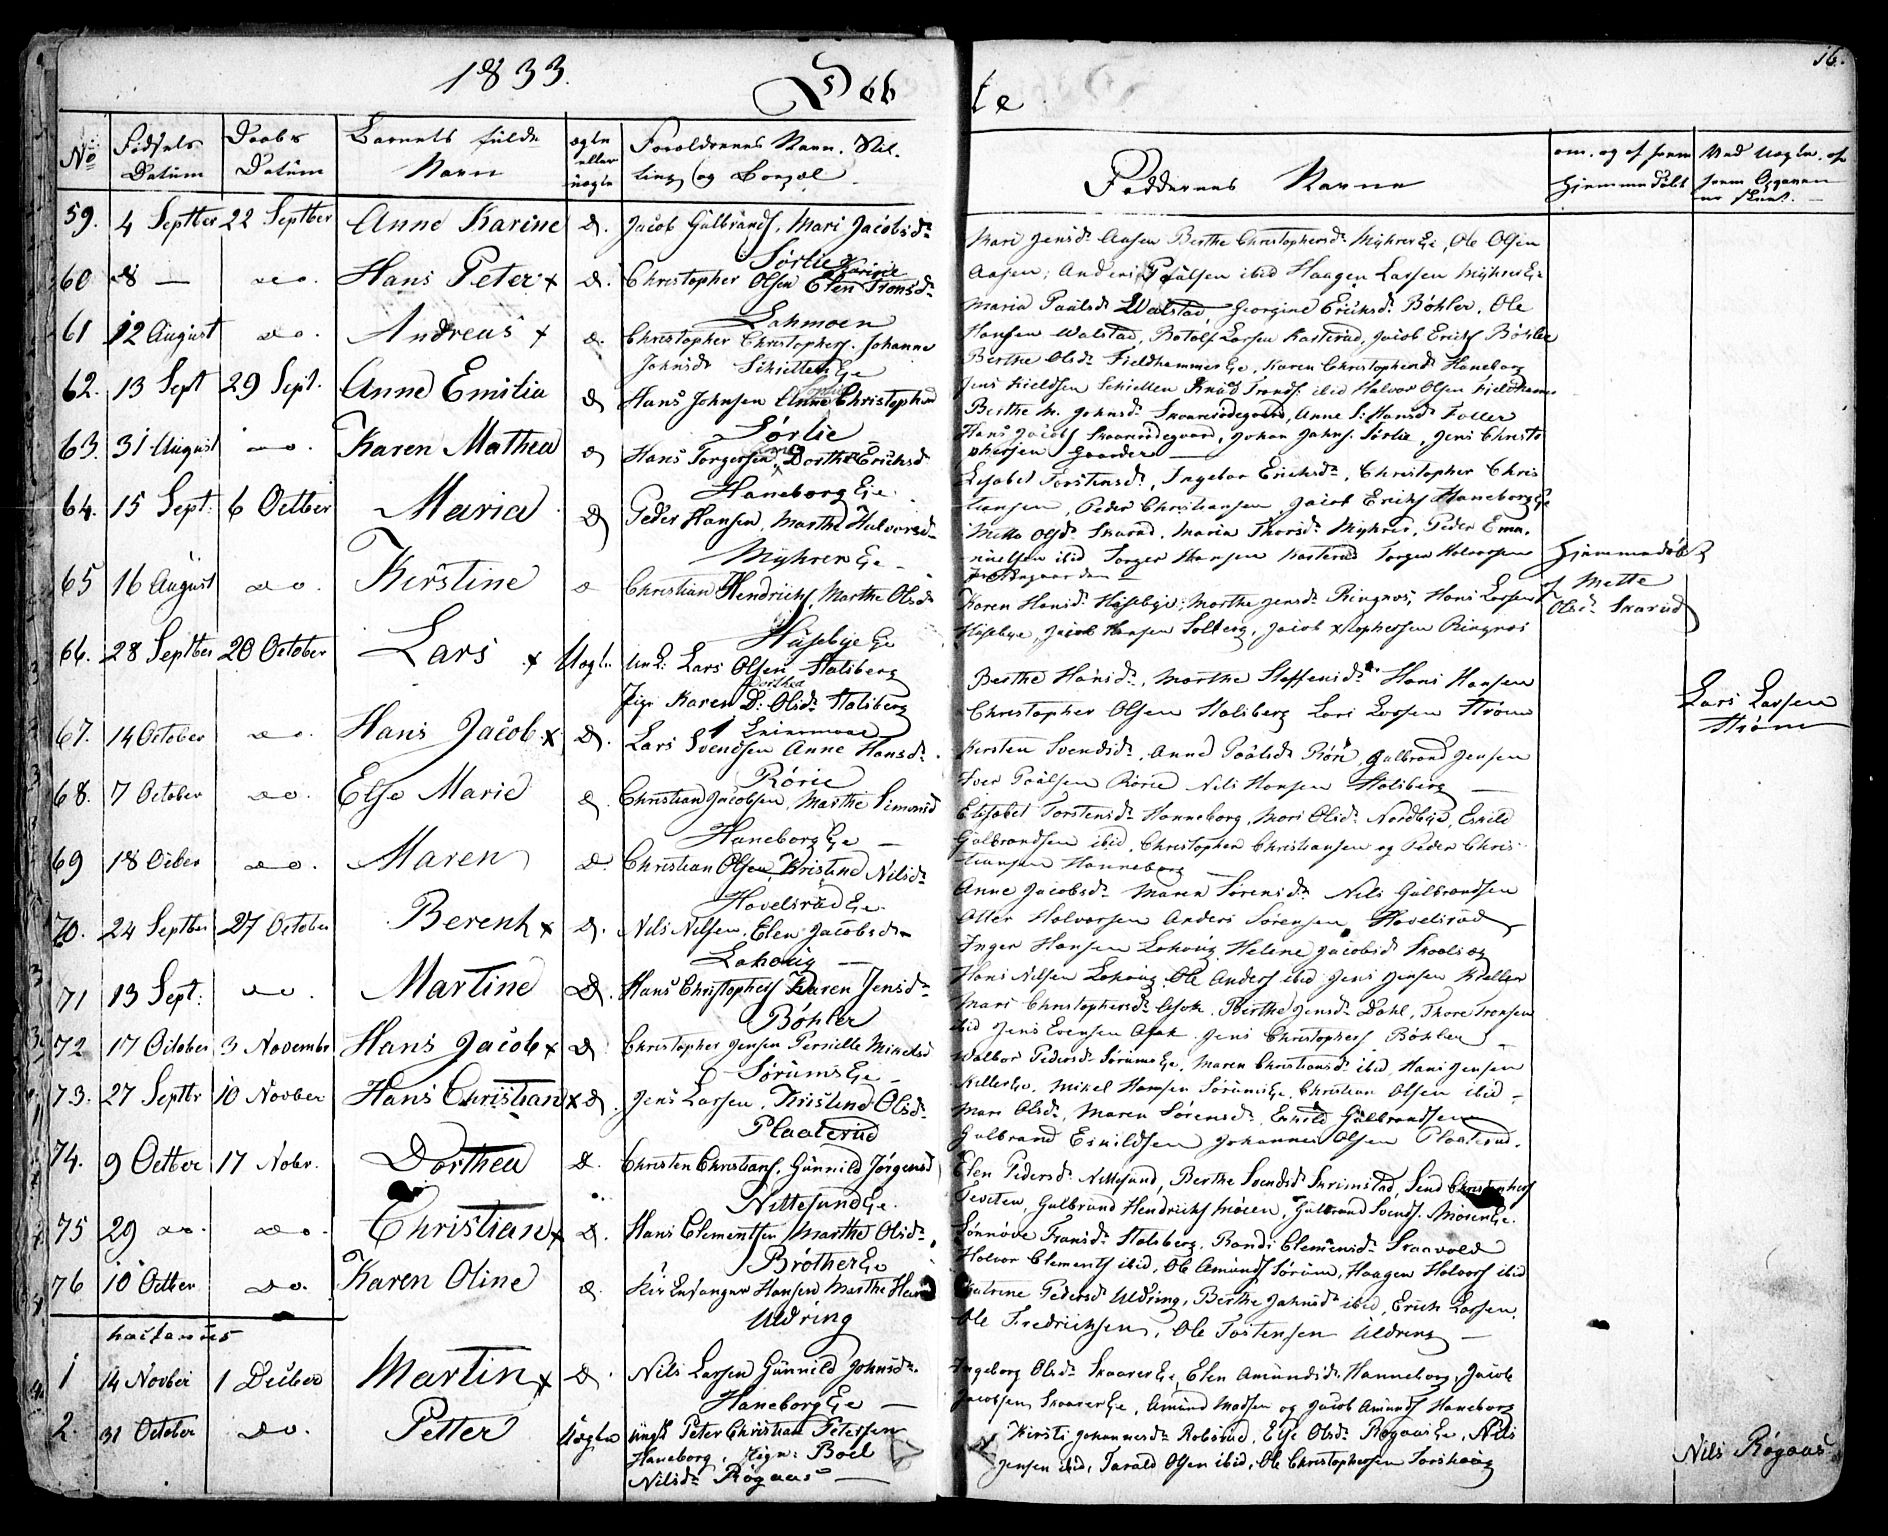 1833.
Døbte
16.
No
Fødsels Datum
Daabs Datum
Barnets fulde Navn
ægte eller uægte
Forældrenes Navn. Stilling og Bopæl
Faddernes Navne
om, og af hvem Hjemmedøbt
59. 4 Septber 22 Septber Anne Karine d. Jacob Gulbrands, Mari Jacobsdr
Sørlie
Mari Jensdr Aasen Berthe Christophersdr Myhrer Eje, Ole Olsen
Aasen, Anders Poulsen ibid Haagen Larsen Myhrer Eje
60 8 — do. Hans Peter x d. Christopher Olsen Elen Karine Tronsdr
Lahmoen
Maria Paulsdr Walstad, Georgine Ericksdr Bøhler, Ole
Hansen Walstad, Botolf Larsen Kasterud, Jacob Ericks Bøhler
61 12 August do. Andreas x d. Christopher Christophers. Johanne
Johnsdr Schiellen Eje
Berthe Olsdr Fieldhammer Eje, Karen Christophersdr Haneborg
Jens Kieldsen Schiellen Knud Tronds. ibid Halvor Olsen Fieldhamer
62. 13 Sept 29 Sept. Anne Emilia d Hans Johnsen Anne Sophie Christophersd
Sørlie
Berthe M. Johnsdr Skaansødegaard, Anne S: Hansdr Foller
Hans Jacobs Skaansødegaard, Johan Johns. Sørlie, Jens Christo
phersen Gaarder —
63. 31 August do. Karen Mathea d Hans Torgersen, Dorthe Ericksd
Haneborg Eje
Lisabet Torstensdr, Ingebor Ericksdr, Christopher Chris
tiansen, Peder Christiansen, Jacob Ericks Haneborg Eje
64. 15 Sept. 6 Octber Maria d Peder Hansen, Marthe Halvorsd
Myhren Eje
Mette Olsdr Skarud, Maria Thorsdr Myhrer, Peder Ema
nuelsen ibid Torger Hansen Kasterud Torger Halvorsen
Hjemmedøbt
af Mette
Olsdr Skarud
65 16 August do. Kirstine d Christian Hendricks, Marthe Olsdr
Hasebye Eje
Karen Hansdr Hasebye, Marthe Jensdr Ringnos, Hans Larsen
Hasebye, Jacob Hansen Solberg, Jacob Xstophersen Ringnos
66. 28 Septber 20 October Lars x Uægte Unk: Lars Olsen Stalsberg
Pige Karen Dorthea D: Olsdr Stalsberg
Berthe Hansdr, Marthe Steffensdr Hans Hansen
Christopher Olsen Stalsberg Lars Larsen Strøm
Lars Larsen
Strøm
67. 14 October do. Hans Jacob x d. Lars Svendsen Anne Hansdr
Rørie
Kirsten Svendsdr, Anne Paalsdr Rørie, Gulbrand Jensen
Iver Paalsen Rørie Nils Hansen Stalsberg —
68. 7 October do. Else Marie d. Christian Jacobsen, Marthe Simensd
Haneborg Eje —
Elisabet Torstensdr Hanneborg, Mari Olsdr Nordbye, Eskild
Gulbrandsen ibid, Christopher Christiansen og Peder Chris
tiansen Hanneborg —
69 18 Octber do. Maren d. Christian Olsen, Kristine Nilsdr
Hovelsrud Eje
Anne Jacobsdr Maren Sørensdr Nils Gulbrandsen
Atter Halvorsen Anders Sørensen, Hovelsrud
70. 24 Septber 27 October Berent x d. Nils Nilsen, Elen Jacobsdr
Lohoug —
Inger Hansen Lohoug Helene Jacobsd
Hans Nilsen Lohoug Ole Anders ibid Jens Jensen Kieller
71 13 Sept. do. Martine d. Hans Christophers Karen Jensdr
Bøhler
Mari Christophersdr, Berthe Jensdr Dahl, Thore Tronsen
ibid Jens Evensen Jens Christophers Bøhler —
72 17 October 3 Novembr Hans Jacob x d Christopher Jensen Pernille Mikelsd
Sørums Eje —
Walbor Pedersdr Sørums Eje, Maren Christiansdr ibid, Hans Jensen
Kieller Eje, Mikel Hansen Sørums Eje, Christian Olsen ibid —
73. 27 Septbr 10 Novber Hans Christian x d. Jens Larsen, Kristine Olsdr
Plaaterud
Mari Olsdr, Maren Sørensdr, Eskild Gulbrandsen
Gulbrand Eskildsen Johannes Olsen Plaaterud.
74. 9 Octber 17 Nobr. Dorthea d. Christen Christians, Gunnild Jørgensd
Nittesund Eje
Elen Pedersdr Nittesund, Berthe Svendsdr Skrimstad, Send Christophers
Tveten, Gulbrand Hendricks Moien, Gulbrand Svends. Moien Eje
75 29 do. do. Christian x d. Hans Clementsen Marthe Olsdr
Brøther Eje
Sønnøve Fransdr Stalsberg, Randi Clemensdr Skaavold
Halvor Clements ibid, Ole Amunds Sørum, Haagen Halvors ibid
76 10 Octber do. Karen Oline d. Hansen Marthe Hansd
Uldring
Katrine Pedersdr Uldring, Berthe Johnsdr ibid, Erich Larsen
Ole Fredricksen, Ole Tostensen Uldring —
1 14 Novber 1 Decber Martin x d. Nils Larsen Gunnild Johnsdr
Haneborg Eje —
Ingeborg Olsdr Skaarer Eje, Elen Amundsdr Hanneborg, Jacob
Jacobsen Skaarer Eje, Amund Madsen og Jacob Amunds Haneborg
2. 31 October do. Petter Uægte ungk Peter Christian Petersen
Haneborg, Pige: Boel
Nilsdr Røgaas —
Kirsti Johannesdr Robsrud, Else Olsdr Røgaas Eje, Nils
Jensen ibid, Tarald Olsen ibid, Ole Christophersen Torshoug
Nils Røgaas